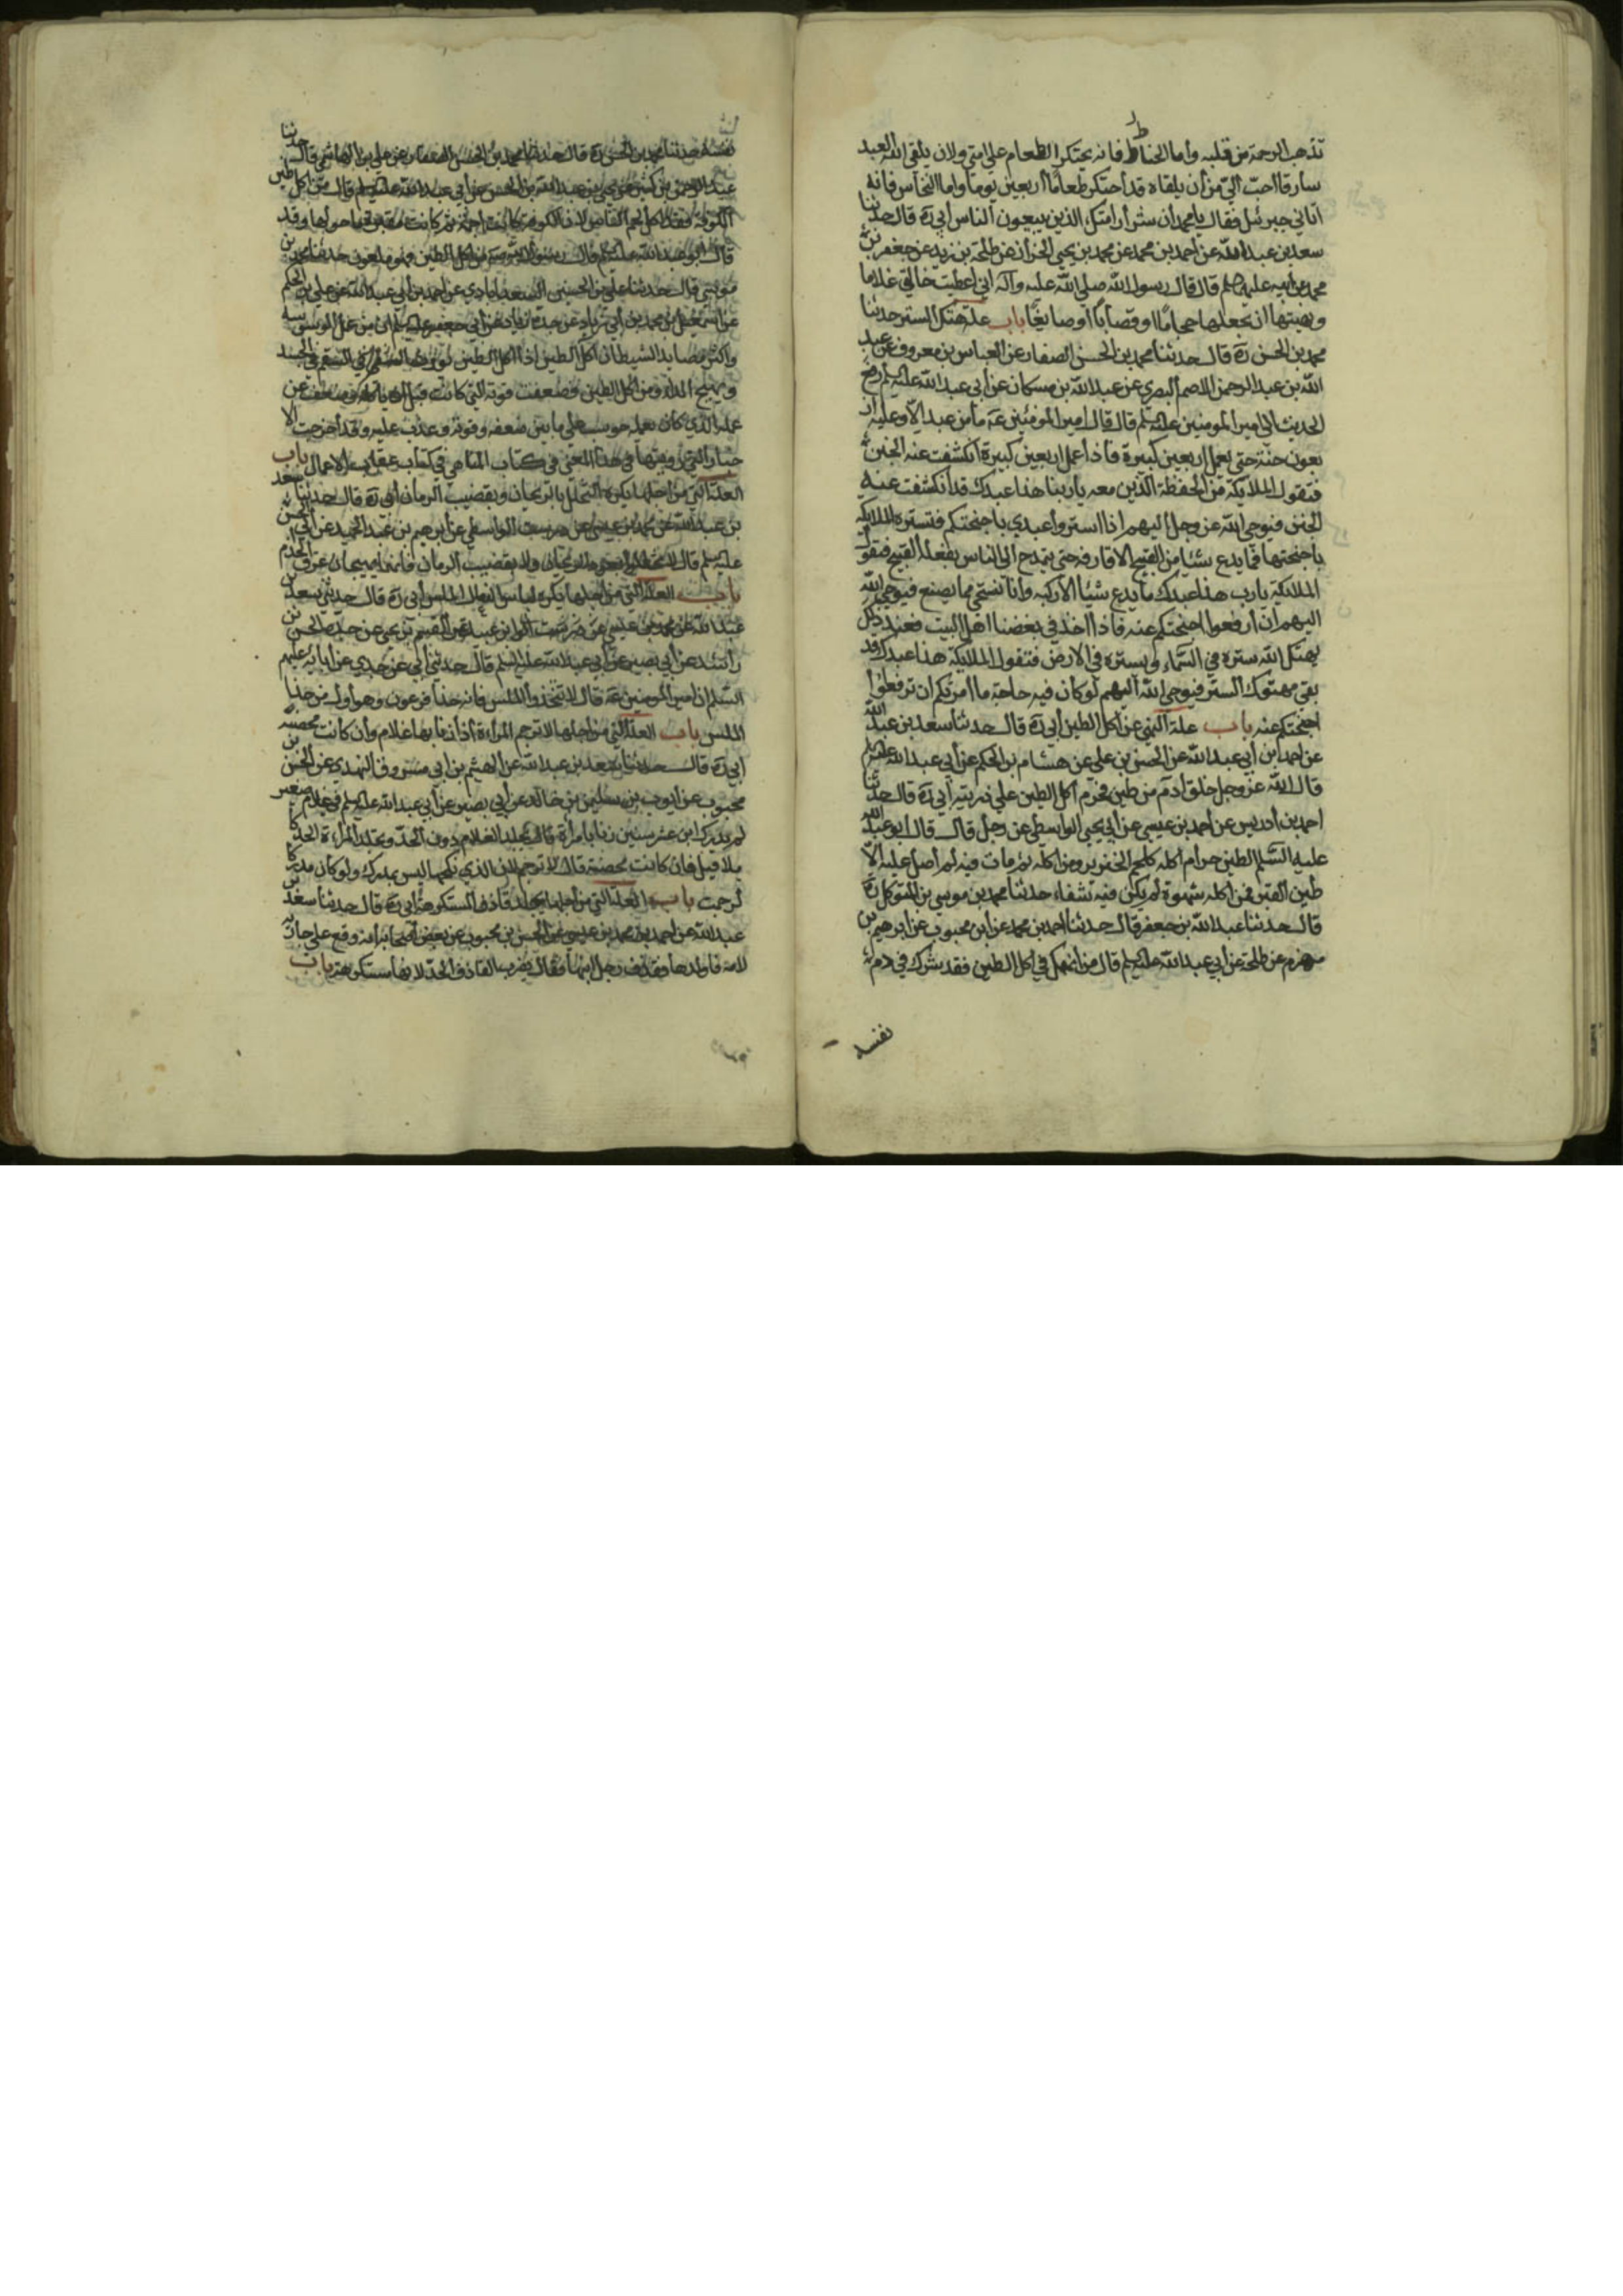 تذهب الرحمة من قلبه واما الحناط فانه يحتكر الطعام علي امتي ولان يلقي الله العبد
سارقا احبّ اليّ من أن يلقاه قد أحتكر طعاماً أربعين يوما واما النخاس فانه
اتاني جبرئيل فقال يا محمد أن شرأر امتك الذين يبيعون الناس أبي ره قال حدثنا
سعد بن عبد الله عن احمد بن محمد عن محمد بن يحيى الخزاز عن طلحة بن زيد عن جعفر بن
محمد عن أبيه عليهما السلم قال قال رسول الله صلي الله عليه وآله اني اعطيت خالتي غلاما
ونهيتها ان تجعله حجاماً او قصاباً او صايغاً باب علة هتك الستر حدثنا
محمد بن الحسن ره قال حدثنا محمد بن الحسن الصفار عن العباس بن معروف عن عبد
الله بن عبد الرحمن الاصم البصري عن عبد الله بن مسكان عن أبي عبد الله عليه السلم رفع
الحديث الي امير المومنين عليه السلم قال قال امير المومنين عه ما من عبد الا وعليه ار
بعون جنة حتي يعمل اربعين كبيرة فاذا عمل اربعين كبيرة انكشفت عنه الجنن
فتقول الملايكة من الحفظة الذين معه يا ربنا هذا عبدك قد انكشفت عنه
الجنن فيوحي الله عز وجل اليهم أن استروا عبدي باجنحتكم فتستره الملايكة
باجنحتها فما يدع شيئا من القبيح الا قارفه حتي يتمدح الي الناس بفعله القبيح فتقول
الملايكة يا رب هذا عبدك ما يدع شيئا الا ركبه وانا نستحي مما يصنع فيوحي الله
اليهم ان أرفعوا اجنحتكم عنه فاذا اخذ في بغضنا اهل البيت فعند ذلك
يهتك الله ستره في السماء ويستره في الارض فتقول الملايكة هذا عبدك قد
بقي مهتوك الستر فيوحي الله اليهم لو كان فيه حاجة ما امرتكم ان ترفعوا
اجنحتكم عنه باب علة النهي عن اكل الطين أبي ره قال حدثنا سعد بن عبد الله
عن احمد ابن أبي عبد الله عن الحسن بن علي عن هشام بن الحكم عن أبي عبد الله عليه السلم
قال الله عز وجل خلق آدم من طين فحرم أكل الطين علي ذريته أبي ره قال حدثنا
احمد بن أدريس عن احمد بن عيسي عن أبي يحيي الواسطي عن رجل قال قال ابو عبد الله
عليه السلم الطين حرام اكله كلحم الخنزير ومن اكله ثم مات فيه لم أصل عليه الا
طين القبر فمن اكله شهوة لم يكن فيه شفاء حدثنا محمد بن موسي بن المتوكل ره
قال حدثنا عبد الله بن جعفر قال حدثنا احمد بن محمد عن ابن محبوب عن ابرهيم بن
مهزم عن طلحة عن أبي عبد الله عليه السلم قال من انهمك في اكل الطين فقد شرك في دم
نفسه
نفسه حدثنا محمد بن الحسن ره قال حدثنا محمد بن الحسن الصفار عن علي بن الهاشمي قال حدثنا
الكوفة فقد اكل لحم الناس لان الكوفة كانت اجمة ثم كانت مقبرة ما حولها وقد
قال ابو عبد الله عليه السلم قال رسول الله صم من اكل الطين فهو ملعون حدثنا محمد بن
موسي قال حدثنا علي بن الحسين السعدابادي عن احمد بن أبي عبد الله عن علي بن الحكم
عن اسمعيل بن محمد بن أبي زياد عن جده زياد عن أبي جعفر عليه السلم ان من عمل الوسوسة
واكثر مصايد الشيطان اكل الطين اذا اكل الطين يورث السقم في الجسد
ويهيج الداء ومن اكل الطين فضعفت قوته التي كانت قبل ان ياكله وضعف عن
عمله الذي كان يعمله حوسب علي ما بين ضعفه وقوته وعذب عليه وقد أخرجت الا
خبار التي رويتها في هذا المعني في كتاب المناهي في كتاب عقاب الاعمال باب
العلة التي من اجلها يكره التخلل بالريحان وبقضيب الرمان أبي ره قال حدثنا سعد
بن عبد الله عن محمد بن عيسي عن درست الواسطي عن أبرهيم بن عبد الحميد عن أبي الحسن
عليه السلم قال لا تخللوا بعود الريحان ولا بقضيب الرمان فانهما يهيجان عرق الجذام
باب العلة التي من اجلها يكره لباس النعال الملس أبي ره قال حدثني سعد بن
راشد عن أبي بصير عن أبي عبد الله عليه السلم قال حدثني أبي عن جدي عن ابايه عليهم
السلم ان امير المومنين عه قال لا تتخذوا الملس فانه حذا فرعون وهو أول من حذا
الملس باب العلة التي من اجلها لا ترجم المراءة اذا زنا بها غلام وأن كانت محصنة
أبي ره قال حدثنا سعد بن عبد الله عن الهيثم بن أبي مسروق النهدي عن الحسن بن
محبوب عن ايوب بن سليمن بن خالد عن أبي بصير عن أبي عبد الله عليه السلم في غلام صغير
لم يدرك ابن عشر سنين زنا بامرأة قال يجلد الغلام دون الحد وتجلد المراءة الحد كا
ملا قيل فان كانت محصنة قال لا ترجم لان الذي نكحها ليس بمدرك ولو كان مدركا
لرجمت باب العلة التي من أجلها يجلد قاذف المستكرهة أبي ره قال حدثنا سعد بن
عبد الله عن احمد بن محمد بن عيسي عن الحسن بن محبوب عن بعض أصحابه أنه وقع علي جارية
لامه فاولدها فقذف رجل ابنها فقال يضرب القاذف الحد لانها مستكرهة باب